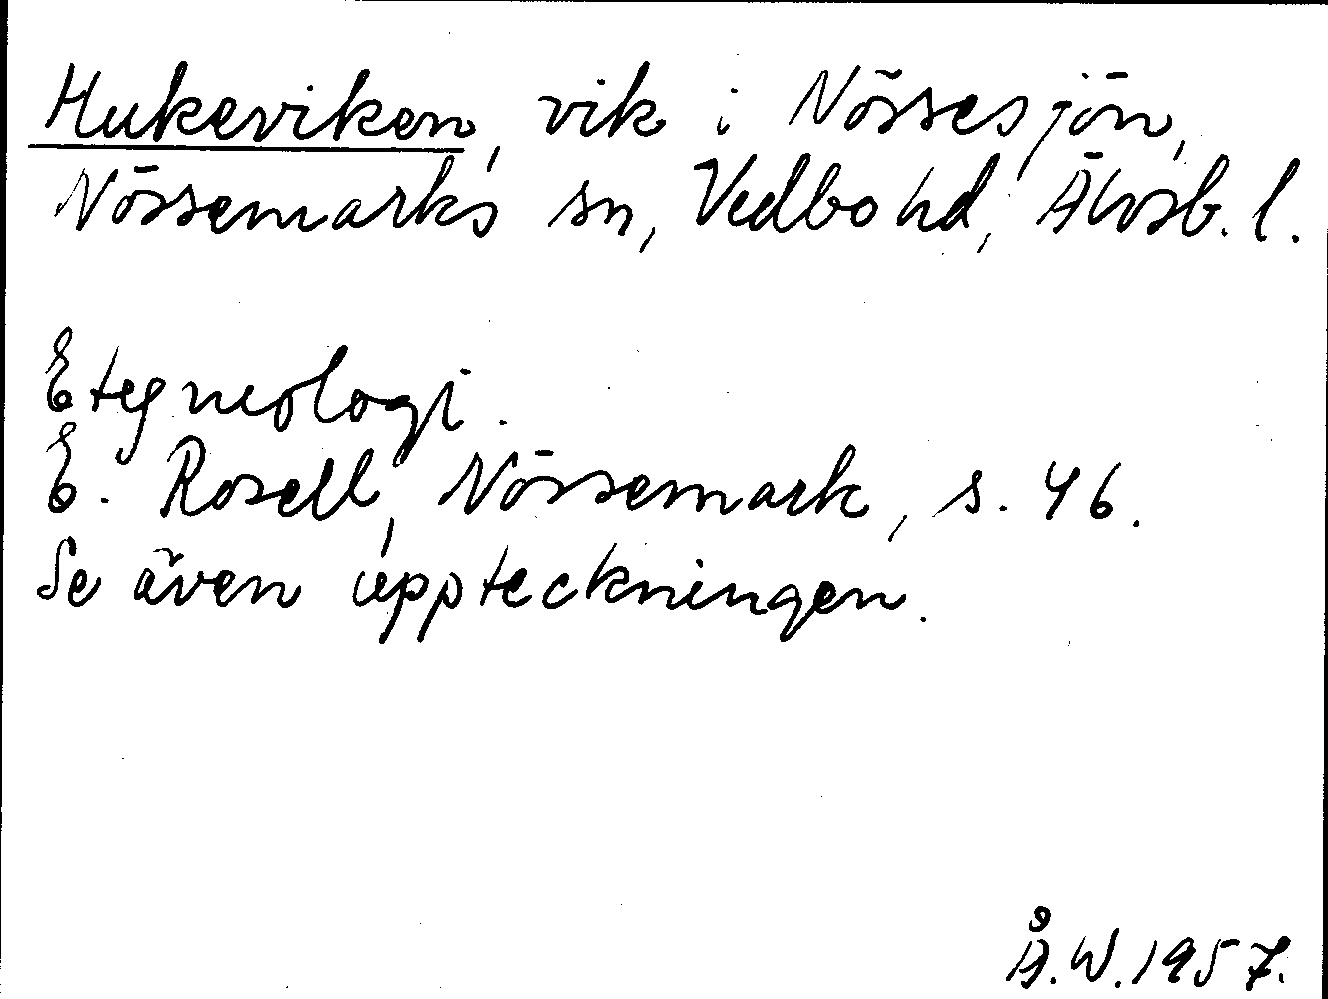 Hukeviken, vik i Nössesjön,
Nössemarks sn, Vedbo hd, Älvsb. l.
Etymologi.
E. Rosell, Nössemark, s. 46.
Se även uppteckningen.
Å.W. 1957.